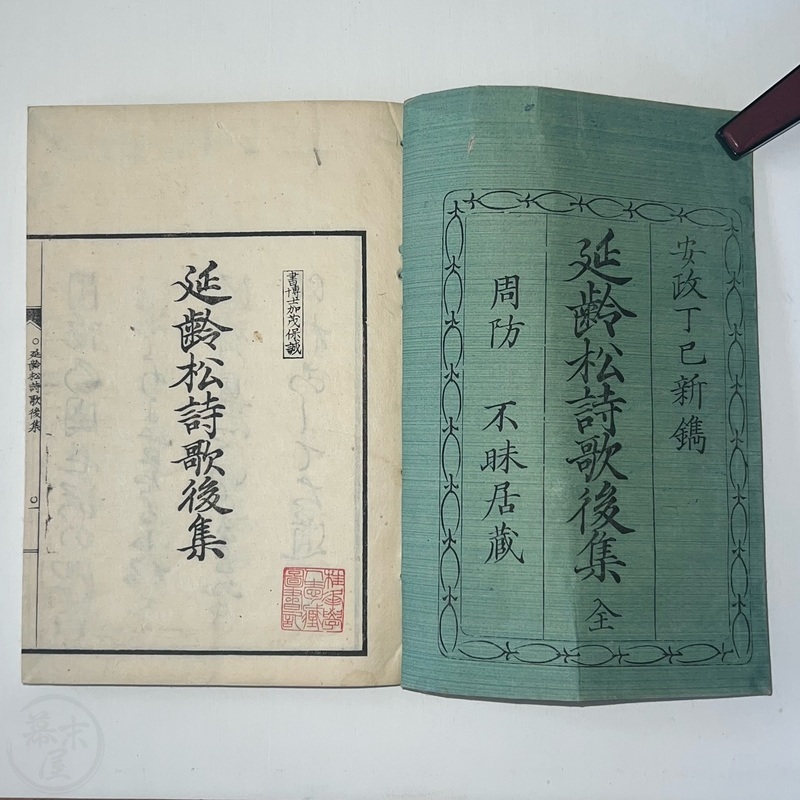 安政丁巳新鐫
延齡松詩歌後集 全
周防 不昧居藏
書博士加茂保誠
延齡松詩歌後集
○延齡松詩歌後集
○一
幕末屋